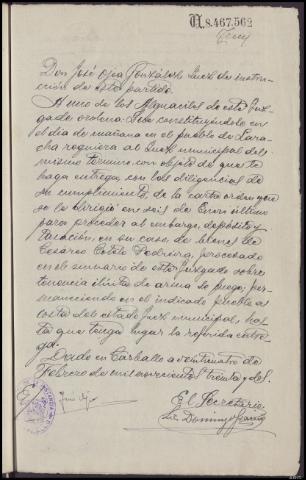 8.467,562
Don José Ojea González Juez de instruc-
ción de este partido.
A uno de los Alguaciles de este Juz-
gado ordeno: Que constituyéndose en
el dia de mañana en el pueblo de Lara-
cha requiera al Juez municipal del
mismo término, con objeto de que te
haga entrega, con las diligencias de
su cumplimiento, de la carta orden que
se le dirigió en seis de Enero último
para proceder al embargo, depósito y
tasación, en su caso, de bienes de
Cesareo Cotelo Pedreira, procesado
en el sumario de este Juzgado sobre
tenencia ilícita de arma de fuego; per-
maneciendo en el indicado pueblo a
costa del citado Juez municipal, has-
ta que tenga lugar la referida entre-
ga.
Dado en Carballo a veinticuatro de
Febrero de mil novecientos treinta y dos.
El Secretario
Domingo